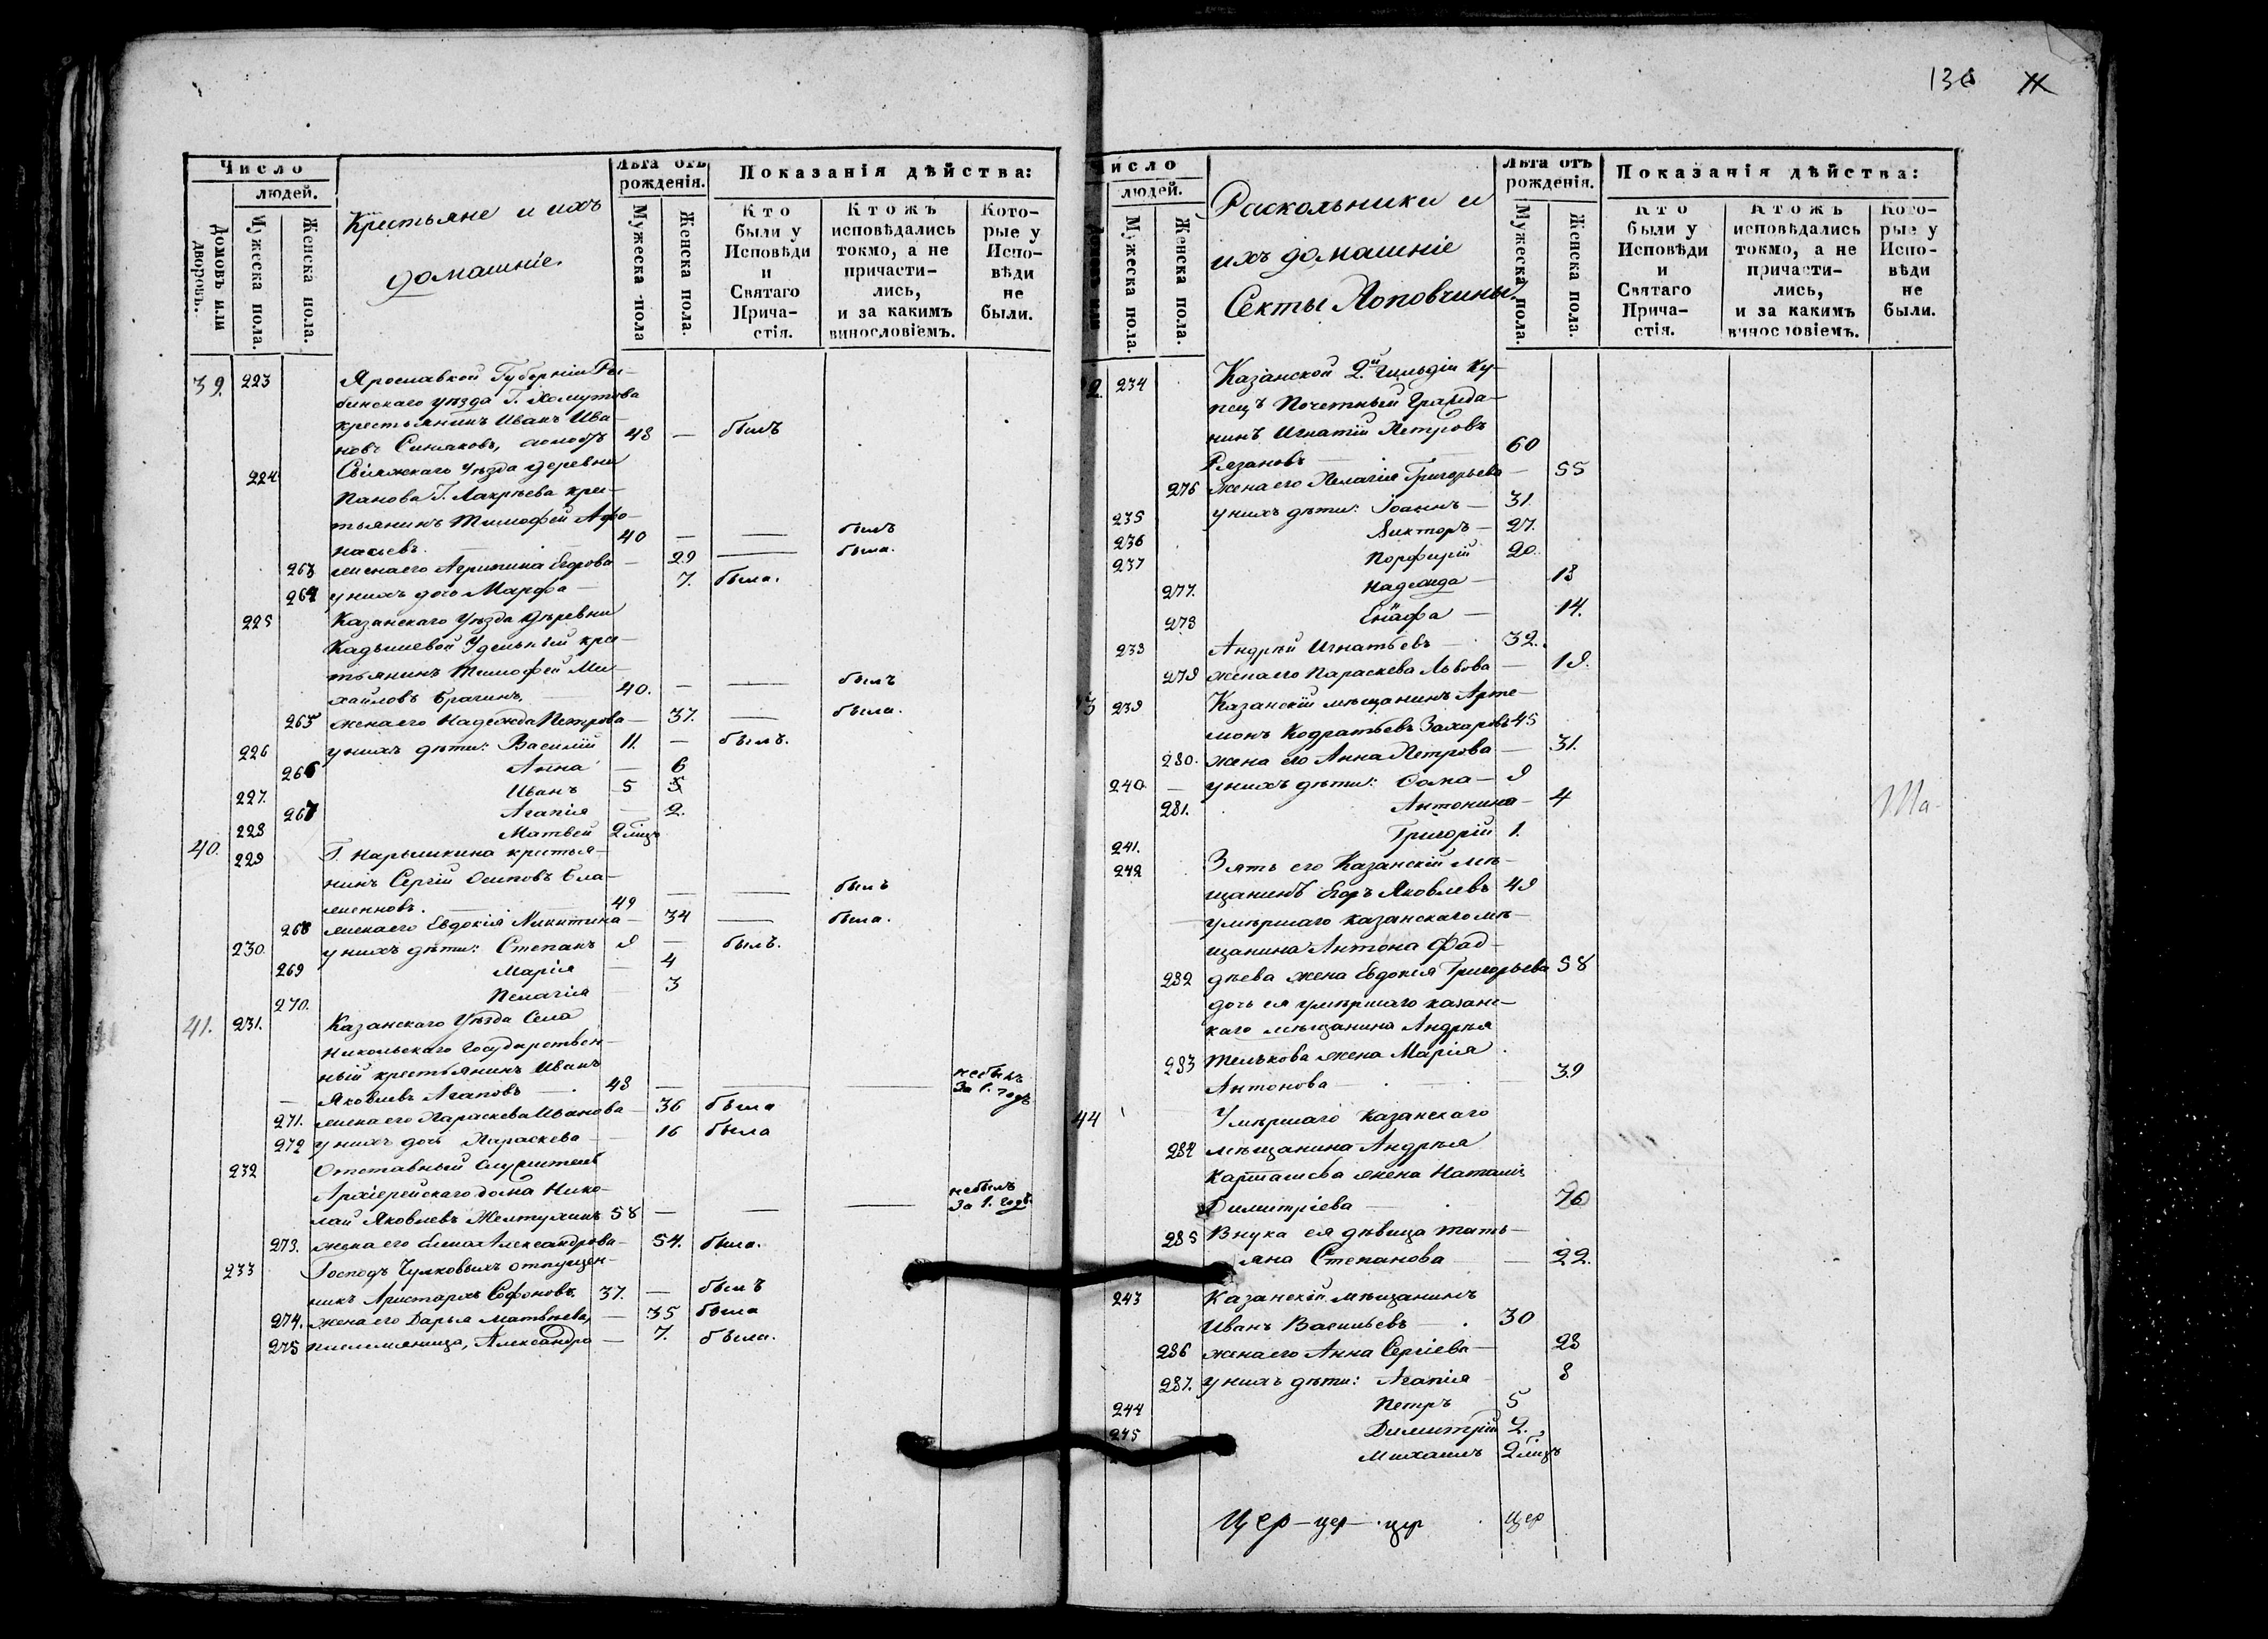 136
Число
людей.
Домовъ или дворовъ.
Мужеска пола.
Женска пола.
Крестьяне и ихъ
домашніе.
Лѣта отъ рожденія.
Мужеска пола
Женска пола.
Показанія дѣйства:
Кто были у Исповѣди и Святаго Причастія.
Ктожъ исповѣдались токмо, а не причастились, и за какимъ винословіемъ.
Которые у Исповѣди не были.
39. 223 Ярославкой Губерніи Ры-
бинскаго уѣзда Г. Хомутова
крестьянинъ Иванъ Ива-
новъ Синяковъ, холостъ 48 — былъ
224 Свіяжскаго Уѣзда деревни
Панова Г. Лахрѣева крес-
тьянинъ Тимофей Афо-
насьевъ. 40 — — былъ
263 жена его Агрипина Егорова — 29 — была.
264 у нихъ дочь Марфа — 7. была.
225 Казанскаго Уѣзда Деревни
Кадышевой Удѣльный крес-
тьянинъ Тимофей Ми-
хайловъ Брагинъ. 40. — — былъ
265 жена его Надежда Петрова — 37. — была.
226 у нихъ дѣти: Василій 11. — былъ.
266 Анна — 6
227. Иванъ 5
267 Агапія — 2.
228 Матвей 2 мѣцъ
40. 229 Г. Нарышкина крестья-
нинъ Сергій Осиповъ Бла-
женновъ. 49 — — былъ
268 жена его Евдокія Никитина — 34 — была.
230. у нихъ дѣти: Степанъ 9 — былъ.
269 Марія — 4
270. Пелагія — 3
41. 231. Казанскаго Уѣзда Села
Никольскаго Государствен-
ный крестьянинъ Иванъ
Яковлевъ Агаповъ 48 — — — небылъ За 1. годъ
271. жена его Параскева Иванова — 36 была
272 у нихъ дочь Параскева — 16 была
232 Отставный служитель
Архіерейскаго дома Нико-
лай Яковлевъ Желтухинъ 58 — — — небылъ За 1. годъ
273. жена его Елена Александрова — 54. была.
233 Господъ Чулковыхъ отпущен-
никъ Аристархъ Софоновъ 37. — былъ
274. жена его Дарья Матвѣева, — 35 была
275 племянница, Александра — 7. была.
Число
людей.
Мужеска пола.
Женска пола.
Раскольники и
ихъ домашніе
Секты Поповчины.
Лѣта отъ рожденія.
Мужеска пола.
Женска пола.
Показанія дѣйства:
Кто были у Исповѣди и Святаго Причастія.
Ктожъ исповѣдались токмо, а не причастились, и за какимъ винословіемъ.
Которые у Исповѣди не были.
2. 234 Казанской 2.й гильдіи Ку-
пецъ Почетный Гражда-
нинъ Игнатій Петровъ
Рязановъ — 60
276 жена его Пелагія Григорьева — 55
235 у нихъ дѣти: Іоаннъ — 31.
236 Викторъ — 27.
237 Порфирій 20.
277. Надежда — 18
278 14.
238 Андрей Игнатьевъ — 32.
279 жена его Параскева Львова — 19.
3 239 Казанскій мѣщанинъ Арте-
монъ Кодратьевъ Захаровъ 45
280. жена его Анна Петрова — 31.
240 у нихъ дѣти: Фома — 9
281. Антонина — 4
241. Григорій 1.
242 Зять его Казанскій мѣ-
щанинъ Егоръ Яковлевъ 49
умѣршаго казанскаго мѣ-
щанина Антона Фад-
282 дѣева жена Евдокія Григорьева 58
дочь ея умѣршаго казанс-
каго мѣщанина Андрѣя
283 Телькова жена Марія
Антонова — 39
44 Умѣршаго Казанскаго
284 мѣщанина Андрѣя
Карташева жена Наталія
Димитріева — 70
285 Внука ея дѣвица Тать-
яна Степанова — 22.
243 Казанскій мѣщанинъ
Иванъ Васильевъ — 30
286 жена его Анна Сергіева — 28
287. у нихъ дѣти: Агапія 8
244 Петръ 5
245 Димитрій 2.
Михаилъ 2 мѣцъ